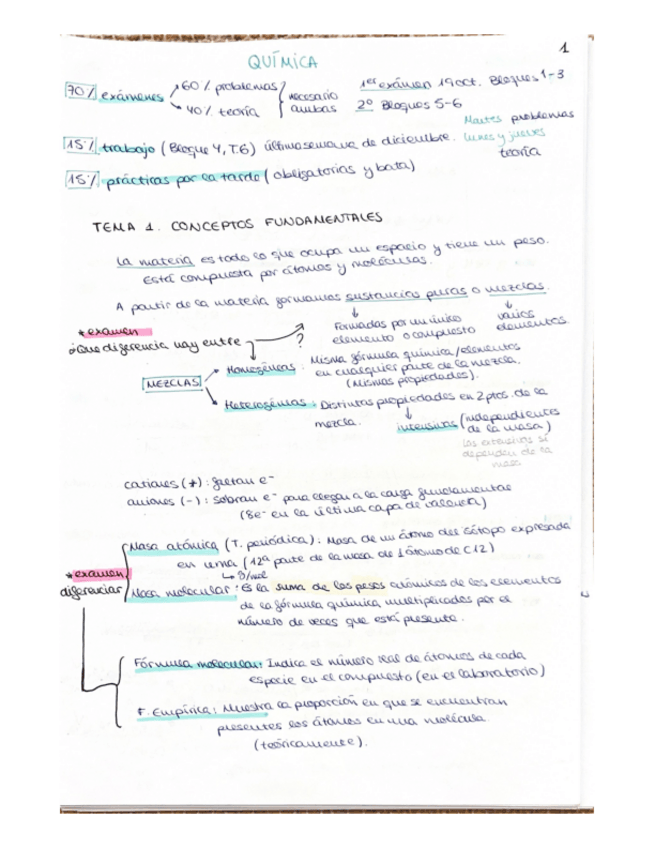 1
QUÍMICA
70% exámenes → 60% problemas / necesario 1er exámen 19 oct. Bloques 1-3
→ 40% teoría ambas 2º Bloques 5-6
Martes problemas
15% trabajo (Bloque 4, T.6) última semana de diciembre. lunes y jueves
teoría
15% prácticas por la tarde (obligatorias y bata)
TEMA 1. CONCEPTOS FUNDAMENTALES
La materia es todo lo que ocupa un espacio y tiene un peso.
Está compuesta por átomos y moléculas.
A partir de la materia formamos sustancias puras o mezclas.
* examen Formadas por un único varios
¿Que diferencia hay entre ? elemento o compuesto elementos.
Homogéneas: Misma fórmula química/elementos
en cualquier parte de la mezcla.
MEZCLAS (Mismas propiedades).
Heterogéneas: Distintas propiedades en 2 ptos. de la
mezcla. intensivas (independientes
de la masa)
Las extensivas sí
dependen de la
masa
cationes (+): faltan e-
aniones (-): sobran e- para llegar a la carga fundamental
(8e- en la última capa de valencia)
Masa atómica (T. periódica): Masa de un átomo del isótopo expresada
en uma (12ª parte de la masa de 1 átomo de C12)
* examen ↳ g/mol
diferenciar Masa molecular: Es la suma de los pesos atómicos de los elementos
de la fórmula química multiplicados por el
número de veces que está presente.
Fórmula molecular: Indica el número real de átomos de cada
especie en el compuesto (en el laboratorio)
F. Empírica: Muestra la proporción en que se encuentran
presentes los átomos en una molécula.
(teóricamente).